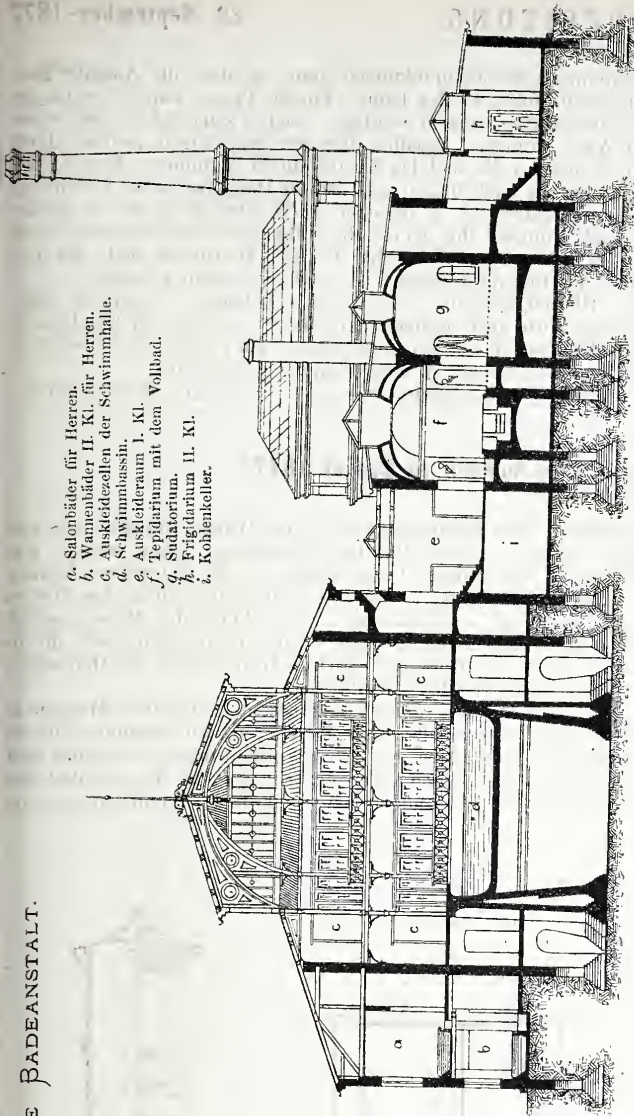 E BADEANSTALT.
a. Salonbäder für Herren.
b. Wannenbäder II. Kl. für Herren.
c. Auskleidezellen der Schwimmhalle.
d. Schwimmbassin.
e. Auskleideraum I. Kl.
f. Tepidarium mit dem Vollbad.
g. Sudatorium.
h. Frigidarium II. Kl.
i. Kohlenkeller.
a
b
c
c
c
c
d
e
i
f
g
h